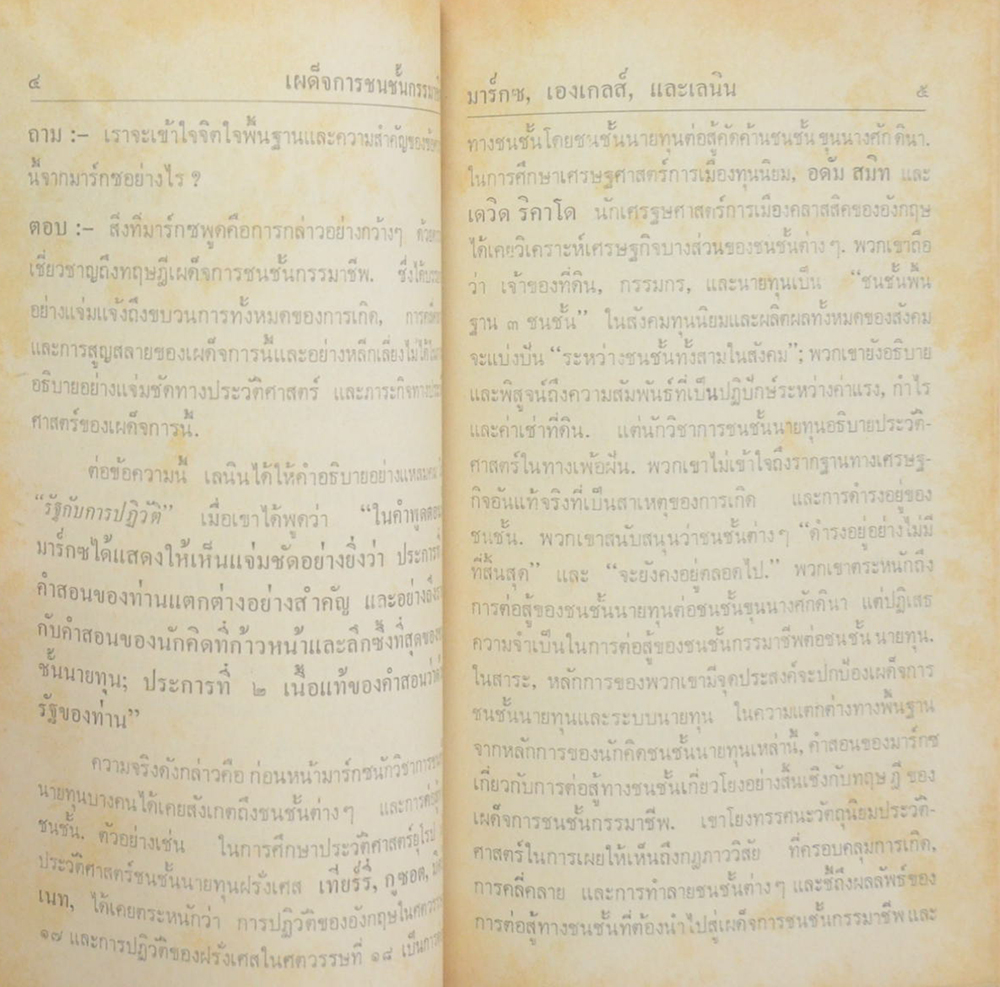 ๔
เผด็จการชนชั้นกรรมา
ถาม :– เราจะเข้าใจจิตใจพื้นฐานและความสำคัญของ
นี้จากมาร์กซอย่างไร ?
ตอบ :– สิ่งที่มาร์กซพูดคือการกล่าวอย่างกว้างๆ
เชี่ยวชาญถึงทฤษฎีเผด็จการชนชั้นกรรมาชีพ. ซึ่งได้
อย่างแจ่มแจ้งถึงขบวนการทั้งหมดของการเกิด,
และการสูญสลายของเผด็จการนี้และอย่างหลีกเลี่ยงไม่ได้
อธิบายอย่างแจ่มชัดทางประวัติศาสตร์ และภาระกิจทาง
ศาสตร์ของเผด็จการนี้.
ต่อข้อความนี้ เลนินได้ให้คำอธิบายอย่างแหลมคม
“รัฐกับการปฏิวัติ” เมื่อเขาได้พูดว่า “ในคำพูด
มาร์กซได้แสดงให้เห็นแจ่มชัดอย่างยิ่งว่า ประการ
คำสอนของท่านแตกต่างอย่างสำคัญ และอย่าง
กับคำสอนของนักคิดที่ก้าวหน้าและลึกซึ้งที่สุดของ
ชั้นนายทุน; ประการที่ ๒ เนื้อแท้ของคำสอนว่า
รัฐของท่าน”
ความจริงดังกล่าวคือ ก่อนหน้ามาร์กซนักวิชาการ
นายทุนบางคนได้เคยสังเกตถึงชนชั้นต่างๆ และการต่อสู้
ชนชั้น. ตัวอย่างเช่น ในการศึกษาประวัติศาสตร์ยุโรป
ประวัติศาสตร์ชนชั้นนายทุนฝรั่งเศส เทียร์รี่, กูซอต,
เนท, ได้เคยตระหนักว่า การปฏิวัติของอังกฤษในศตวรรษ
๑๗ และการปฏิวัติของฝรั่งเศสในศตวรรษที่ ๑๘ เป็นการ
มาร์กซ, เองเกลส์, และเลนิน
๕
ทางชนชั้นโดยชนชั้นนายทุนต่อสู้คัดค้านชนชั้นขุนนางศักดินา.
ในการศึกษาเศรษฐศาสตร์การเมืองทุนนิยม, อดัม สมิท และ
เดวิด ริคาโด นักเศรฐษศาสตร์การเมืองคลาสสิคของอังกฤษ
ได้เคยวิเคราะห์เศรษฐกิจบางส่วนของชนชั้นต่างๆ. พวกเขาถือ
ว่า เจ้าของที่ดิน, กรรมกร, และนายทุนเป็น “ชนชั้นพื้น
ฐาน ๓ ชนชั้น” ในสังคมทุนนิยมและผลิตผลทั้งหมดของสังคม
จะแบ่งปัน “ระหว่างชนชั้นทั้งสามในสังคม”; พวกเขายังอธิบาย
และพิสูจน์ถึงความสัมพันธ์ที่เป็นปฏิปักษ์ระหว่างค่าแรง, กำไร
และค่าเช่าที่ดิน. แต่นักวิชาการชนชั้นนายทุนอธิบายประวัติ-
ศาสตร์ในทางเพ้อฝัน. พวกเขาไม่เข้าใจถึงรากฐานทางเศรษฐ-
กิจอันแท้จริงที่เป็นสาเหตุของการเกิด และการดำรงอยู่ของ
ชนชั้น. พวกเขาสนับสนุนว่าชนชั้นต่างๆ “ดำรงอยู่อย่างไม่มี
ที่สิ้นสุด” และ “จะยังคงอยู่ตลอดไป.” พวกเขาตระหนักถึง
การต่อสู้ของชนชั้นนายทุนต่อชนชั้นขุนนางศักดินา แต่ปฏิเสธ
ความจำเป็นในการต่อสู้ของชนชั้นกรรมาชีพต่อชนชั้นนายทุน.
ในสาระ, หลักการของพวกเขามีจุดประสงค์จะปกป้องเผด็จการ
ชนชั้นนายทุนและระบบนายทุน ในความแตกต่างทางพื้นฐาน
จากหลักการของนักคิดชนชั้นนายทุนเหล่านี้, คำสอนของมาร์กซ
เกี่ยวกับการต่อสู้ทางชนชั้นเกี่ยวโยงอย่างสิ้นเชิงกับทฤษฎีของ
เผด็จการชนชั้นกรรมาชีพ. เขาโยงทรรศนะวัตถุนิยมประวัติ-
ศาสตร์ในการเผยให้เห็นถึงกฎภาววิสัย ที่ครอบคลุมการเกิด,
การคลี่คลาย และการทำลายชนชั้นต่างๆ และชี้ถึงผลลัพธ์ของ
การต่อสู้ทางชนชั้นที่ต้องนำไปสู่เผด็จการชนชั้นกรรมาชีพ และ